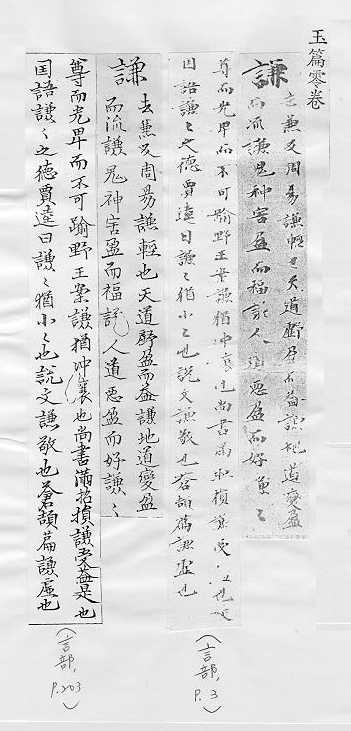 玉篇零卷
謙 去兼反周易謙輕也天道虧盈而益謙地道變盈
而流謙鬼神害盈而福謙人道惡盈而好謙〻
尊而光卑而不可踰野王案謙猶沖讓也尚書滿招損謙受益是也
国語謙〻之德賈逵曰謙〻猶小〻也說文謙敬也蒼頡篇謙虛也
(言部, P.3)
謙 去兼反周易謙輕也天道虧盈而益謙地道變盈
而流謙鬼神害盈而福說人道惡盈而好謙〻
尊而光卑而不可踰野王案謙猶沖讓也尚書滿招損謙受益是也
国語謙〻之德賈逵曰謙〻猶小〻也說文謙敬也蒼頡篇謙虛也
(言部, P.203)